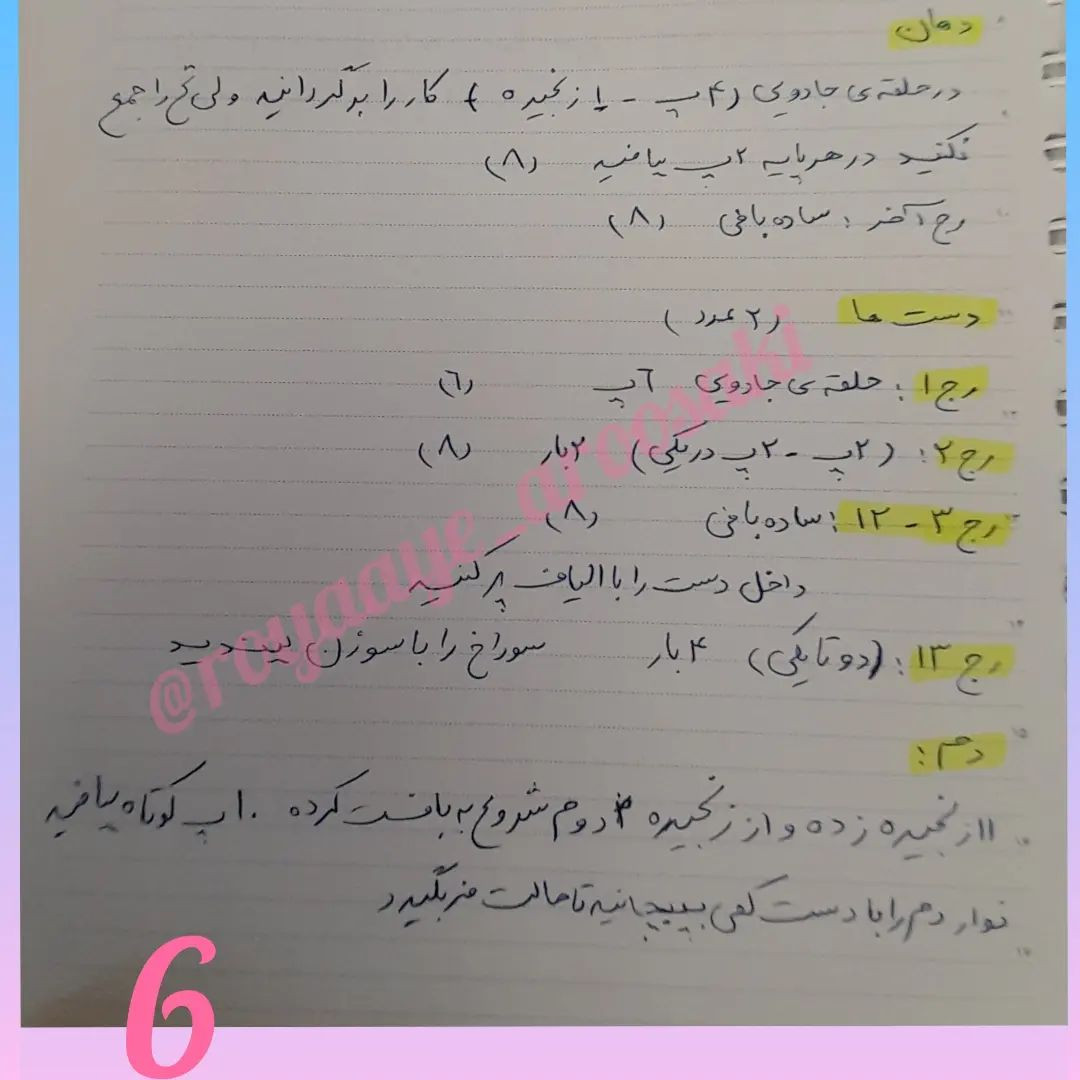 دهان
در حلقه ی جادویی (۴پ - ۱ زنجیره) کار را برگردانید ولی نخ را جمع
نکنید در هر پایه ۲پ ببافید (۸)
رج آخر : ساده بافی (۸)
دست ها (۲ عدد)
رج ۱ : حلقه ی جادویی ۶پ (۶)
رج ۲ : (۲پ - ۲پ در یکی) ۲بار (۸)
رج ۳ - ۱۲ : ساده بافی (۸)
داخل دست را با الیاف پر کنید
رج ۱۳ : (دوتا یکی) ۴بار سوراخ را با سوزن ببندید
دم :
۱۱ زنجیره زده و از زنجیره دوم شروع به بافت کرده ۱۰پ کوتاه ببافید
نوار دم را با دست کمی بپیچانید تا حالت فر بگیرد
@royaaye_aroosaki
6